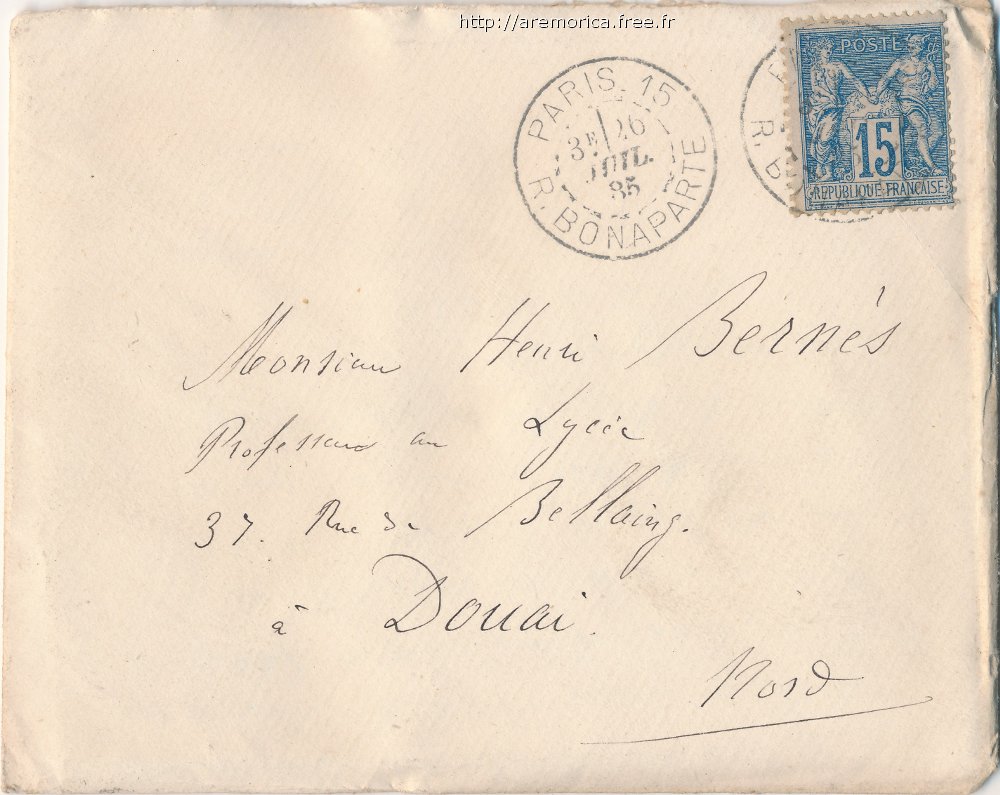 http://aremorica.free.fr
POSTE
15
RÉPUBLIQUE FRANÇAISE
PARIS. 15
3E 26
JUIL.
85
R. BONAPARTE
Monsieur Henri Bernés
Professeur au Lycée
37. Rue de Bellaing.
à Douai.
Nord